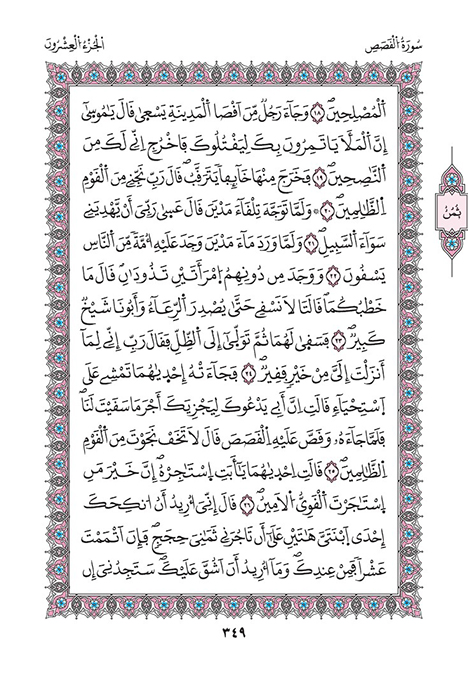 سُورَةُ الْقَصَصِ
الْجُزْءُ الْعِشْرُونَ
اَ۬لْمُصْلِحِينَۖ ١٨ وَجَآءَ رَجُلٞ مِّنَ اَقْصَا اَ۬لْمَدِينَةِ يَسْع۪يٰ قَالَ يَٰمُوس۪يٰٓ
إِنَّ اَ۬لْمَلَأَ يَاتَمِرُونَ بِكَ لِيَقْتُلُوكَ فَاخْرُجِ اِنِّے لَكَ مِنَ
اَ۬لنَّٰصِحِينَۖ ١٩ فَخَرَجَ مِنْهَا خَآئِفاٗ يَتَرَقَّبُۖ قَالَ رَبِّ نَجِّنِے مِنَ اَ۬لْقَوْمِ
اِ۬لظَّٰلِمِينَۖ ٢٠ ۞ وَلَمَّا تَوَجَّهَ تِلْقَآءَ مَدْيَنَ قَالَ عَس۪يٰ رَبِّيَ أَنْ يَّهْدِيَنِے
سَوَآءَ اَ۬لسَّبِيلِۖ ٢١ وَلَمَّا وَرَدَ مَآءَ مَدْيَنَ وَجَدَ عَلَيْهِ أُمَّةٗ مِّنَ اَ۬لنَّاسِ
يَسْقُونَۖ ٢٢ وَوَجَدَ مِن دُونِهِمُ اُ۪مْرَأَتَيْنِ تَذُودَٰنِۖ قَالَ مَا
خَطْبُكُمَاۖ قَالَتَا لَا نَسْقِے حَتَّىٰ يُصْدِرَ اَ۬لرِّعَآءُۖ وَأَبُونَا شَيْخٞ
كَبِيرٞۖ ٢٣ فَسَق۪يٰ لَهُمَا ثُمَّ تَوَلّ۪يٰٓ إِلَى اَ۬لظِّلِّ فَقَالَ رَبِّ إِنِّے لِمَآ
أَنزَلْتَ إِلَيَّ مِنْ خَيْرٖ فَقِيرٞۖ ٢٤ فَجَآءَتْهُ إِحْد۪يٰهُمَا تَمْشِے عَلَى
اَ۪سْتِحْيَآءٖۖ قَالَتِ اِنَّ أَبِے يَدْعُوكَ لِيَجْزِيَكَ أَجْرَ مَا سَقَيْتَ لَنَاۖ
فَلَمَّا جَآءَهُۥ وَقَصَّ عَلَيْهِ اِ۬لْقَصَصَ قَالَ لَا تَخَفْ نَجَوْتَ مِنَ اَ۬لْقَوْمِ
اِ۬لظَّٰلِمِينَۖ ٢٥ قَالَتِ اِحْد۪يٰهُمَا يَٰٓأَبَتِ اِ۪سْتَٰجِرْهُۖ إِنَّ خَيْرَ مَنِ
اِ۪سْتَٰجَرْتَ اَ۬لْقَوِيُّ اُ۬لَامِينُۖ ٢٦ قَالَ إِنِّيَ أُرِيدُ أَنُ ا۟نكِحَكَ
إِحْدَى اَ۪بْنَتَيَّ هَٰتَيْنِ عَلَىٰٓ أَن تَاجُرَنِے ثَمَٰنِيَ حِجَجٖۖ فَإِنَ اَتْمَمْتَ
عَشْراٗ فَمِنْ عِندِكَۖ وَمَآ أُرِيدُ أَنَ اَشُقَّ عَلَيْكَۖ سَتَجِدُنِيَ إِن
ثُمُنُ
٣٤٩